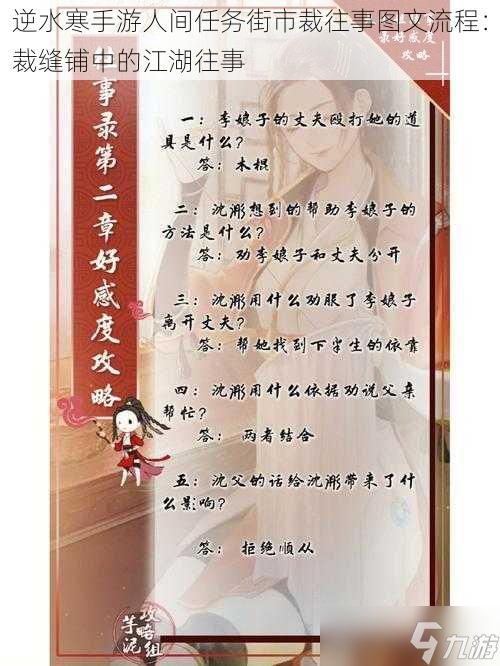 逆水寒手游人间任务街市裁往事图文流程：
裁缝铺中的江湖往事
最好感度
攻略
事录第二章好感度攻略
一：李娘子的丈夫殴打她的道
具是什么？
答：木棍
二：沈渐想到的帮助李娘子的
方法是什么？
答：劝李娘子和丈夫分开
三：沈渐用什么劝服了李娘子
离开丈夫？
答：帮她找到下半生的依靠
四：沈渐用什么依据劝说父亲
帮忙？
答：两者结合
五：沈父的话给沈渐带来了什
么影响？
答：拒绝顺从
芋泥
攻略组
九游